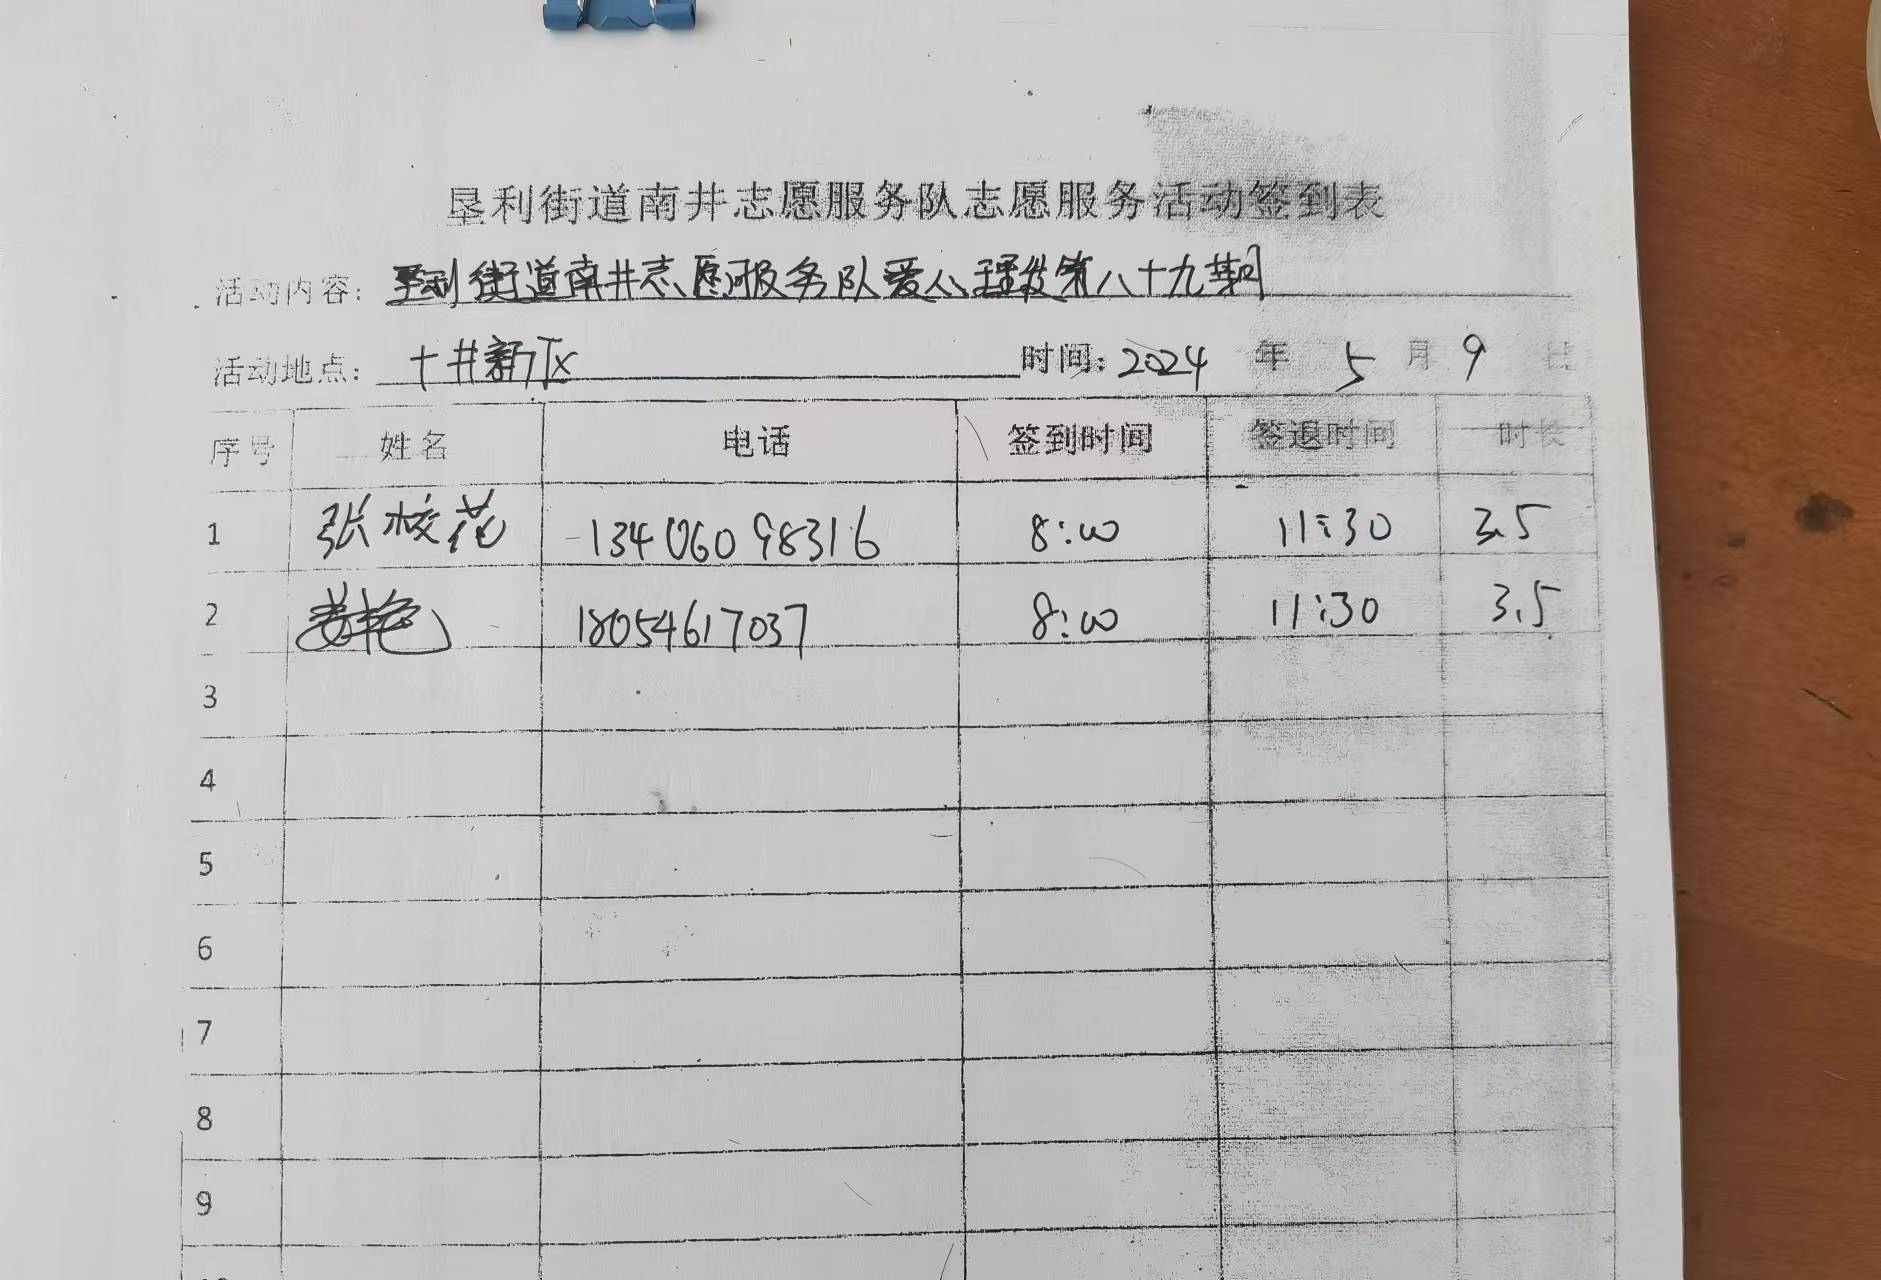 垦利街道南井志愿服务队志愿服务活动签到表
活动内容: 垦利街道南井志愿服务队爱心理发第八十九期
活动地点: 十井新区 时间: 2024 年 5 月 9 日
序号 姓名 电话 签到时间 签退时间 时长
1 张校花 13406098316 8:00 11:30 3.5
2 姜艳 18054617037 8:00 11:30 3.5
3
4
5
6
7
8
9